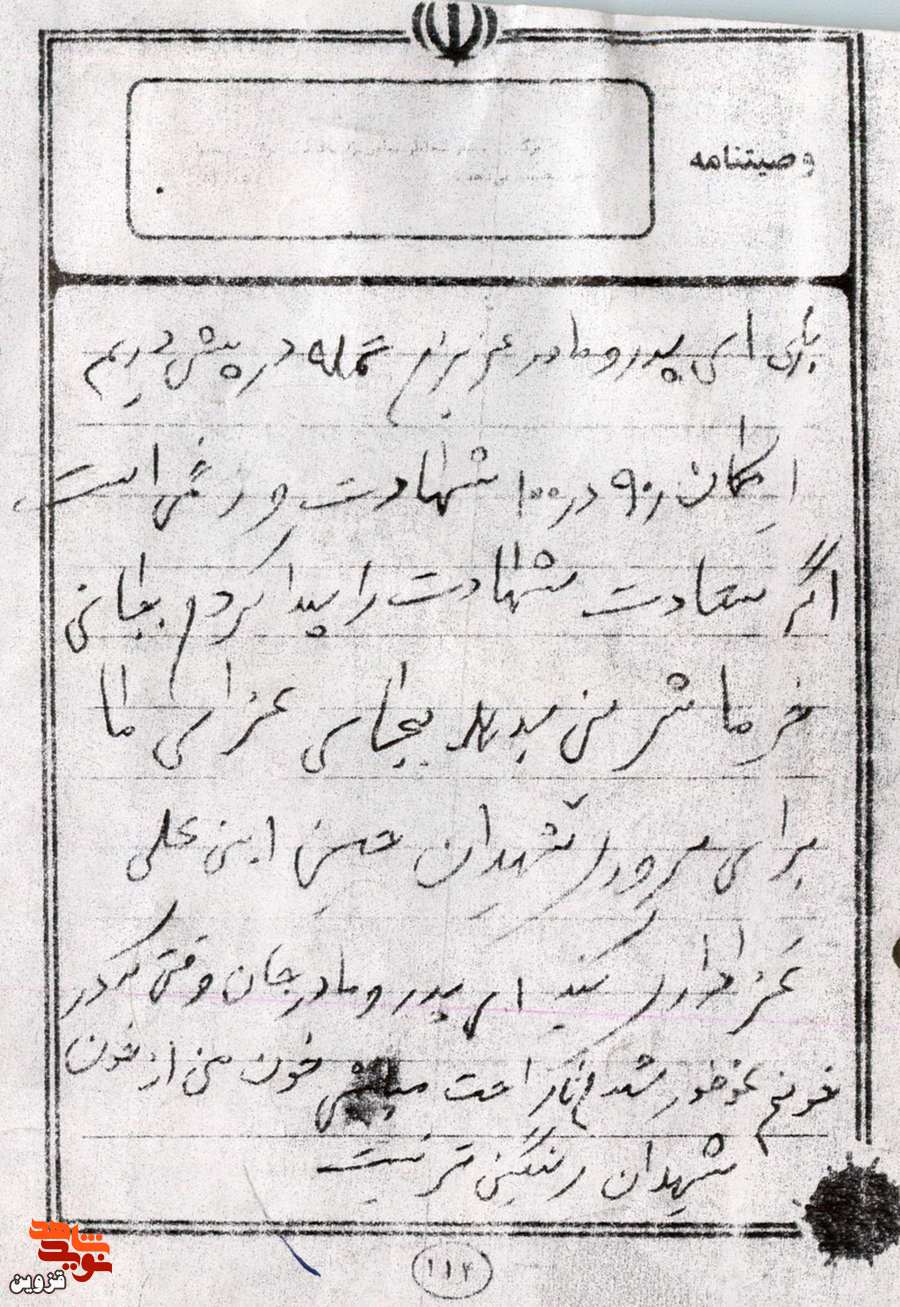 وصیتنامه
باری ای پدر و مادر عزیزم حمله در پیش داریم
امکان ۹۰ در ۱۰۰ شهادت و زخمی است
اگر سعادت شهادت را پیدا کردم بجای
من بجای عزای ما
برای سرور شهیدان حسین ابن علی
عزاداری کنید ای پدر و مادر جان وقتی که در
خونم غوطور شدم ناراحت مباش خون من از خون
شهیدان رنگین تر نیست
۱۱۲
نوید شاهد
قزوین